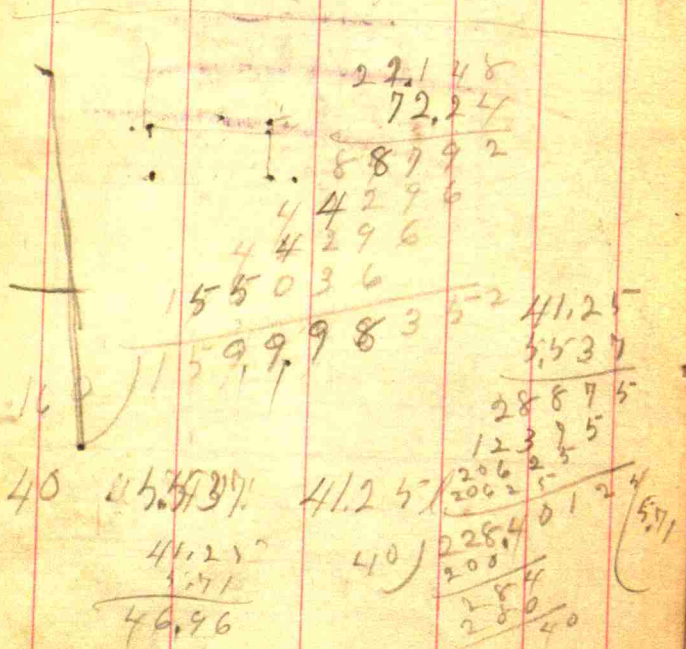 22.148
72.24
88792
44296
44296
155036
1599.98352
160
41.25
5.537
28875
12375
20625
20625
40 5.537 41.25
41.25
5.71
46.96
40)228.4012(5.71
200
284
280
40